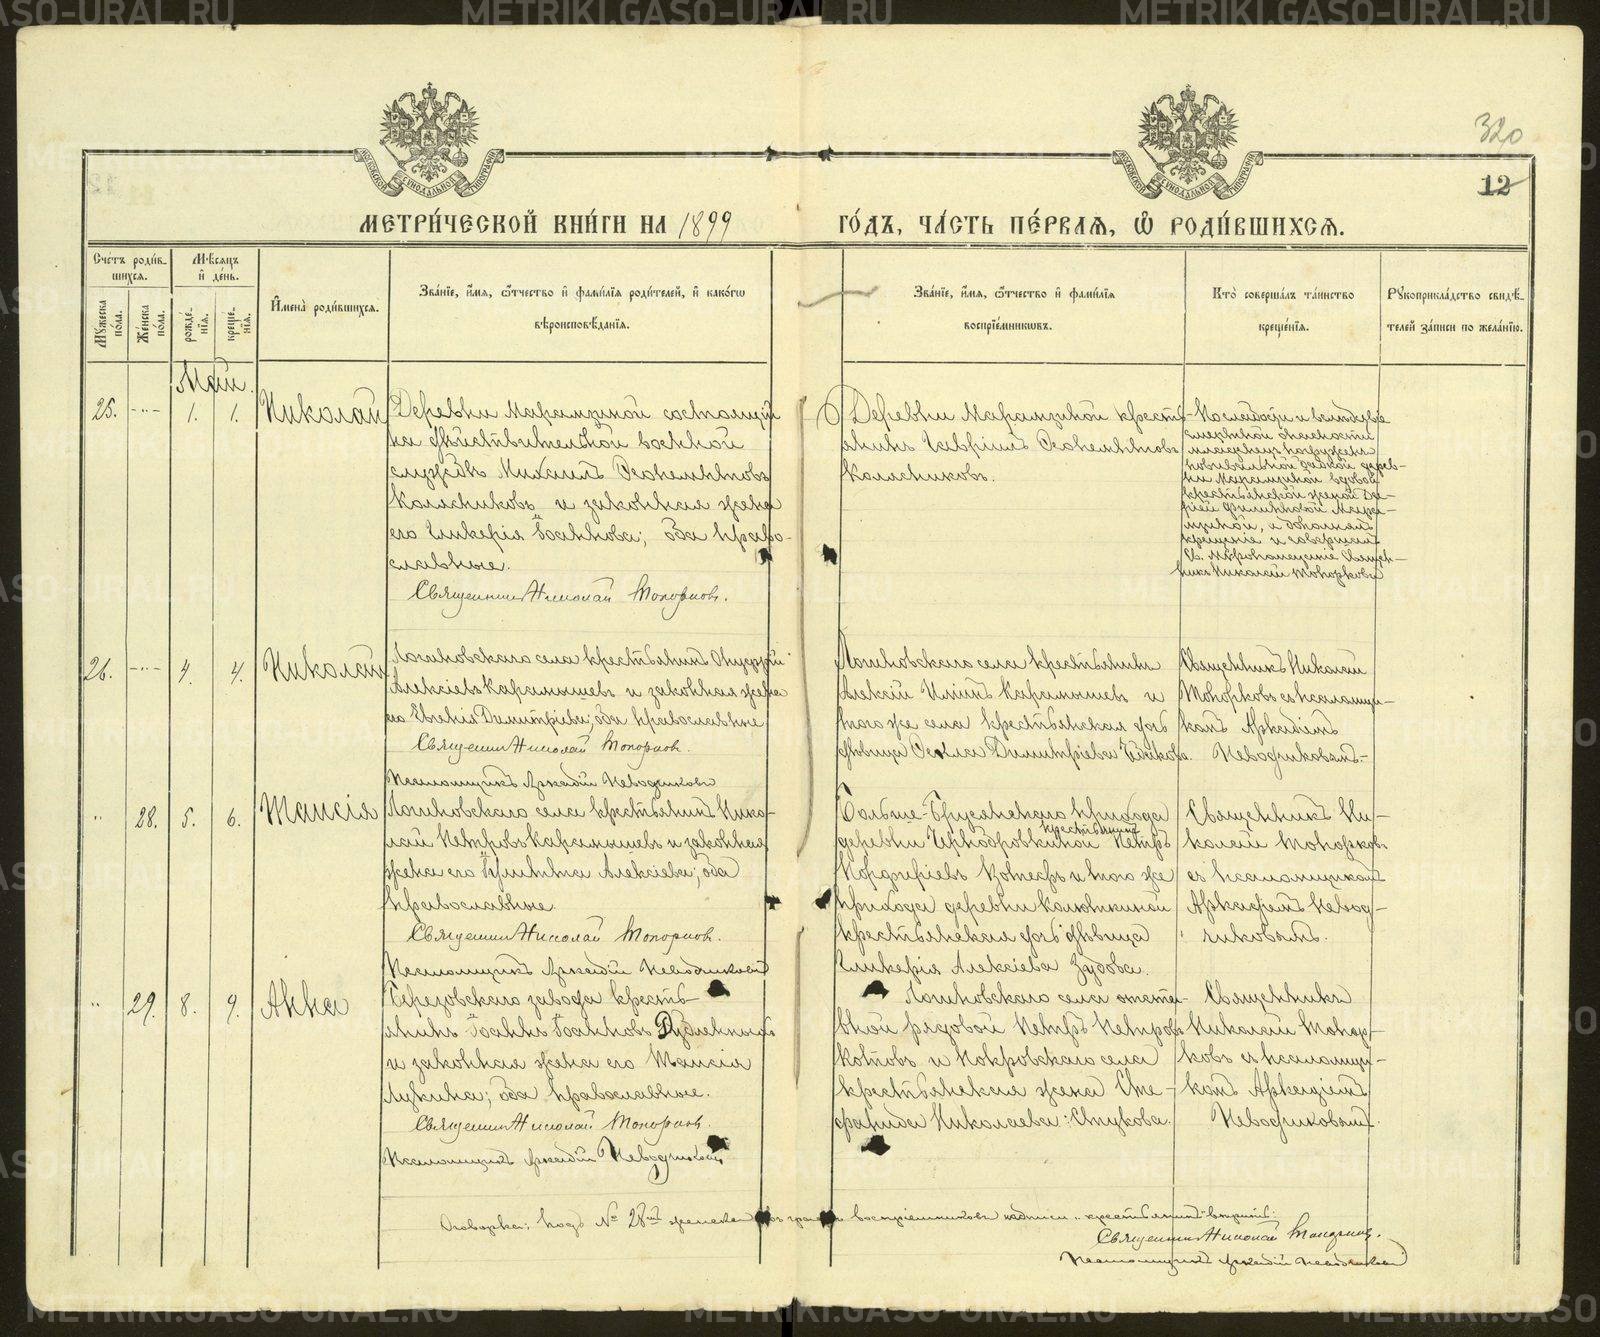 METRIKI.GASO-URAL.RU
320
12
МЕТРИ́ЧЕСКОЙ КНИ́ГИ НА 1899 ГО́ДЪ, ЧА́СТЬ ПЕ́РВАЯ, Ѡ҆ РОДИ́ВШИХСЯ.
Сче́тъ роди́в-
шихся.
Мѣ́сяцъ
и҆ де́нь.
Мꙋ́жеска по́ла.
Же́нска по́ла.
рожде́-нїя.
креще́-нїя.
И҆мена̀ роди́вшихся.
Зва́нїе, и҆́мя, ѻ҆́тчество и҆ фами́лїя роди́телей, и҆ како́гѡ
вѣроисповѣ́данїя.
Зва́нїе, и҆́мя, ѻ҆́тчество и҆ фами́лїя
воспрїе́мникѡвъ.
Кто̀ соверша́лъ та́инство
креще́нїя.
Рꙋкоприкла́дство свидѣ́-
телей за́писи по жела́нїю.
Май.
25. 1. 1. Николай
Деревни Марамзиной состоящій
на дѣйствительной военной
службѣ Михаилъ
Колясниковъ и законная жена
его Гликерія Іоаннова; оба право-
славные.
Священникъ Николай Топорковъ.
Деревни Марамзиной кресть-
янинъ Гавріилъ
Колясниковъ.
По слабости и вслѣдствіе
смертной опасности
младенецъ погруженъ
повивальной бабкой дерев-
ни Марамзиной вдовой
крестьянской женой
крещеніе и совершилъ
Св. Мѵропомазаніе Священ-
никъ Николай Топорковъ
26. 4. 4. Николай
Логиновскаго села крестьянинъ
Алексіевъ Карамышевъ и законная жена
его Евгенія Димитріева; оба православные
Священникъ Николай Топорковъ.
Псаломщикъ Аркадій Неводчиковъ
Логиновскаго села крестьянинъ
Алексій Ильинъ Карамышевъ и
того же села крестьянская дочь
дѣвица Ѳекла Димитріева
Священникъ Николай
Топорковъ съ псаломщи-
комъ Аркадіемъ
Неводчиковымъ.
" 28. 5. 6. Таисія
Логиновскаго села крестьянинъ Нико-
лай Петровъ Карамышевъ и законная
жена его Іулитта Алексіева; оба
православные.
Священникъ Николай Топорковъ.
Псаломщикъ Аркадій Неводчиковъ
Больше-Брусянскаго прихода
деревни крестьянинъ Петръ
Порфиріевъ и того же
прихода деревни Колюткиной
крестьянская дочь дѣвица
Гликерія Алексіева Зудова.
Священникъ Ни-
колай Топорковъ
съ псаломщикомъ
Аркадіемъ Невод-
чиковымъ.
" 29. 8. 9. Анна
Березовскаго завода кресть-
янинъ Іоаннъ Іоанновъ
и законная жена его Таисія
Лукина; оба православные.
Священникъ Николай Топорковъ.
Псаломщикъ Аркадій Неводчиковъ
Логиновскаго села отста-
вной рядовой Петръ Петровъ
Котовъ и Покровскаго села
крестьянская жена Сте-
фанида Николаева Стукова.
Священникъ
Николай Топор-
ковъ съ псаломщи-
комъ Аркадіемъ
Неводчиковымъ.
Оговорка: подъ № 28 женска въ графѣ воспріемниковъ надписи „крестьянинъ" вѣрить:
Священникъ Николай Топорковъ.
Псаломщикъ Аркадій Неводчиковъ